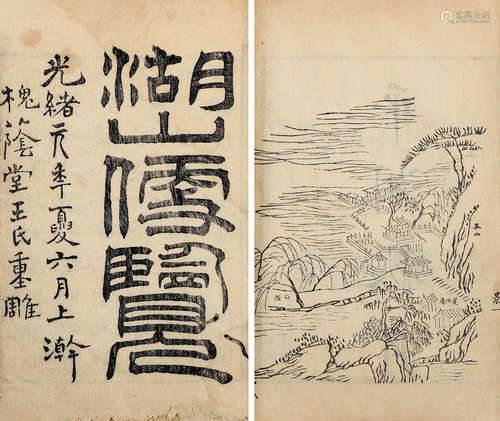 湖山便覽
光緒元年夏六月上澣
槐蔭堂王氏重雕